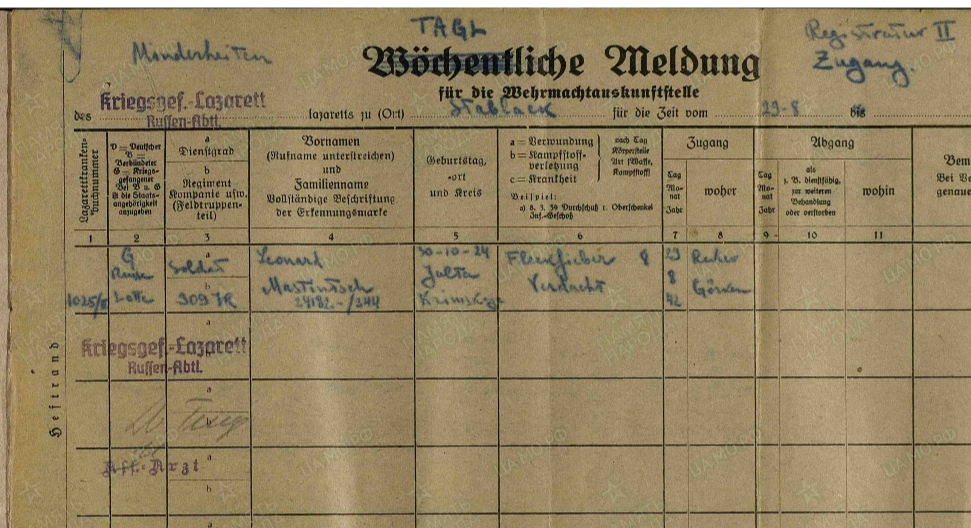 TAGL
Registratur II
Minderheiten
Wöchentliche Meldung
Zugang.
für die Wehrmachtauskunftstelle
Kriegsgef.-Lazarett
Russen-Abtl.
des lazaretts zu (Ort) Stablack für die Zeit vom 29-8 bis
Lazarettkranken-
buchnummer
D = Deutscher
B = Verbündeter
G = Kriegs-
gefangener
Bei B u. G
ist die Staats-
angehörigkeit
anzugeben
a
Dienstgrad
b
Regiment
Kompanie usw.
(Feldtruppen-
teil)
Vornamen
(Rufname unterstreichen)
und
Familienname
Vollständige Beschriftung
der Erkennungsmarke
Geburtstag,
-ort
und Kreis
a = Verwundung
b = Kampfstoff-
verletzung
c = Krankheit
nach Tag
Körperstelle
Art (Waffe,
Kampfstoff)
Beispiel:
a) 8. 3. 39 Durchschuß r. Oberschenkel
Inf.-Geschoß
Zugang
Tag
Mo-
nat
Jahr
woher
Abgang
Tag
Mo-
nat
Jahr
als
z. B. dienstfähig,
zur weiteren
Behandlung
oder verstorben
wohin
Bem
Bei Ve
genaue
1 2 3 4 5 6 7 8 9 10 11
G a Leonard 30-10-24 Fleckfieber 8 29
Soldat Jalta Verdacht 8
1025/8 b 309 JR 24182.-/344 42
Kriegsgef.-Lazarett
Russen-Abtl.
a
a
Aff.-Arzt
a
b
a
Heftrand